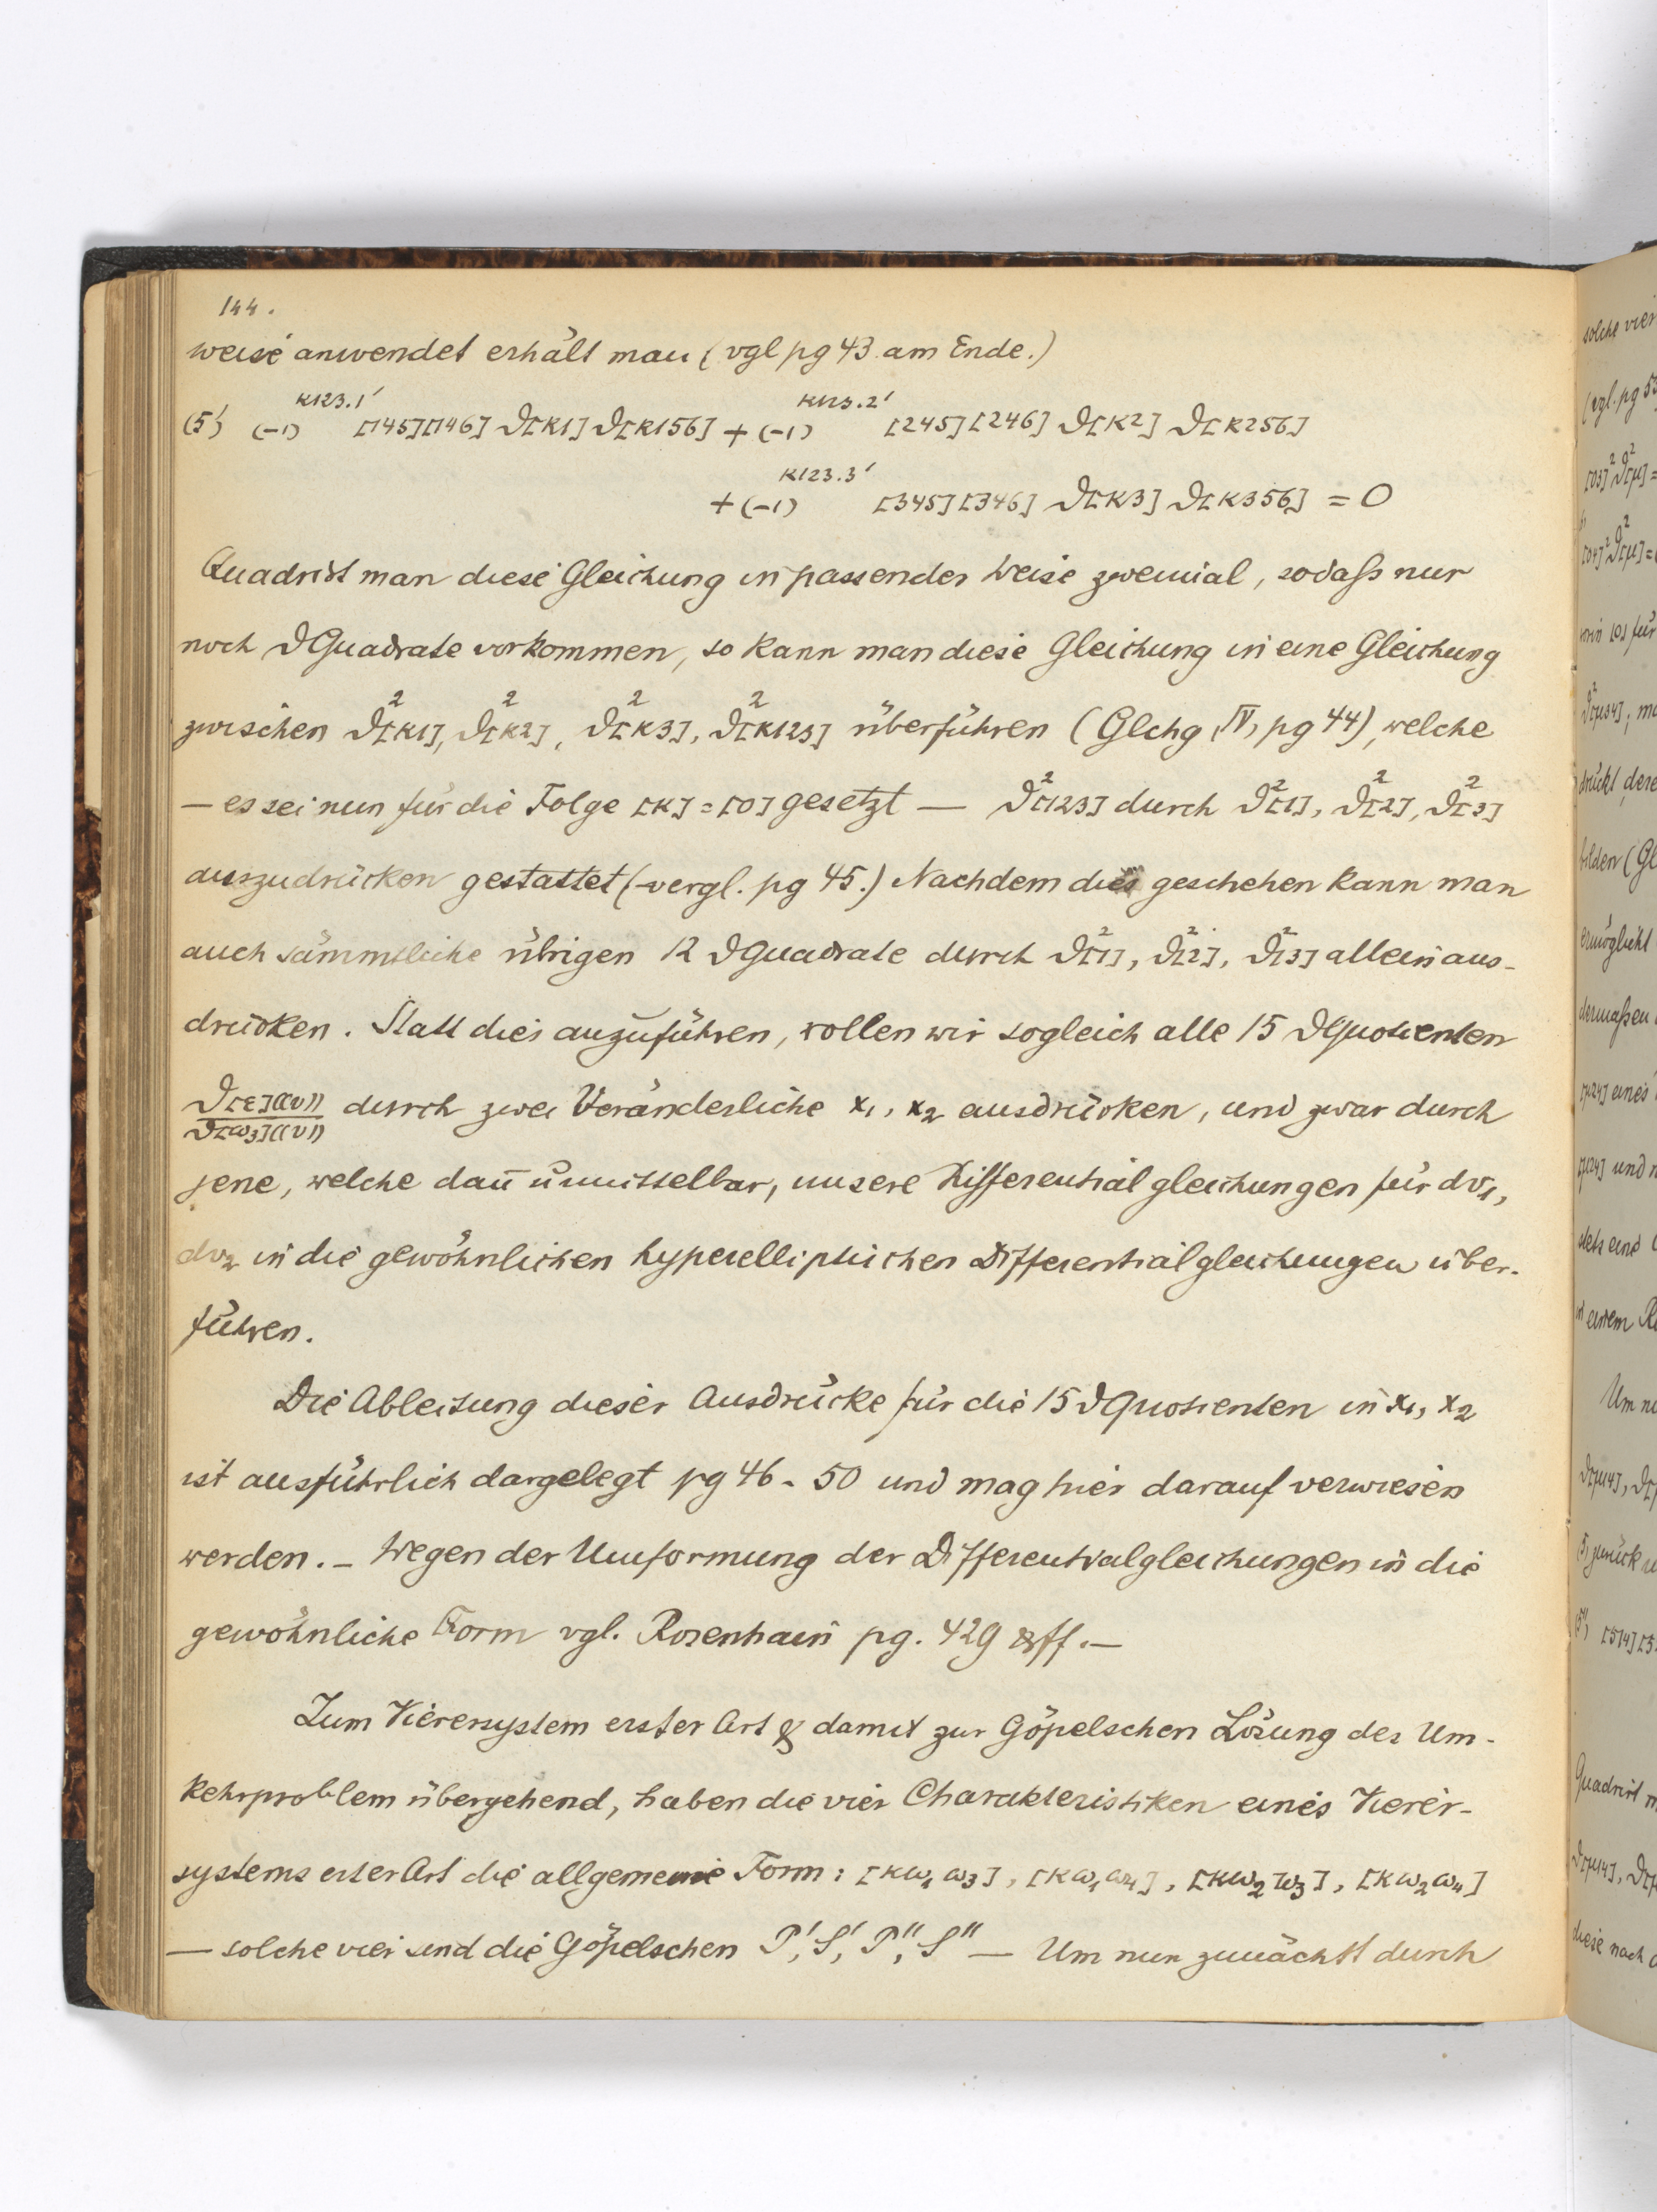 144.
weise anwendet erhält man (vgl pg 43 am Ende.)
(5') (-1)^{κ123.1'} [145][146] ϑ[κ1] ϑ[κ156] + (-1)^{κ123.2'} [245][246] ϑ[κ2] ϑ[κ256]
+ (-1)^{κ123.3'} [345][346] ϑ[κ3] ϑ[κ356] = 0
Quadrirt man diese Gleichung in passender Weise zweimal, sodaß nur
noch ϑQuadrate vorkommen, so kann man diese Gleichung in eine Gleichung
zwischen ϑ²[κ1], ϑ²[κ2], ϑ²[κ3], ϑ²[κ123] überführen (Glchg IV, pg 44), welche
— es sei nun für die Folge [κ] = [0] gesetzt — ϑ²[123] durch ϑ²[1], ϑ²[2], ϑ²[3]
auszudrücken gestattet (vergl. pg 45.) Nachdem dies geschehen kann man
auch sämmtliche übrigen 12 ϑQuadrate durch ϑ²[1], ϑ²[2], ϑ²[3] allein aus-
drücken. Statt dies anzuführen, wollen wir sogleich alle 15 ϑQuotienten
ϑ[ε]((v))/ϑ[ω₃]((v)) durch zwei Veränderliche x₁, x₂ ausdrücken, und zwar durch
jene, welche dan̄ unmittelbar, unsere Differentialgleichungen für dv₁,
dv₂ in die gewöhnlichen hyperelliptischen Differentialgleichungen über-
führen.
Die Ableitung dieser Ausdrücke für die 15 ϑQuotienten in x₁, x₂
ist ausführlich dargelegt pg 46 - 50 und mag hier darauf verwiesen
werden. — Wegen der Umformung der Differentialgleichungen in die
gewöhnliche Form vgl. Rosenhain pg. 429 & ff. —
Zum Vierersystem erster Art & damit zur Göpelschen Lösung des Um-
kehrproblem übergehend, haben die vier Charakteristiken eines Vierer-
systems erster Art die allgemeine Form: [κω₁ω₃], [κω₁ω₄], [κω₂ω₃], [κω₂ω₄]
— solche vier sind die Göpelschen P', S', P'', S'' — Um nun zunächst durch